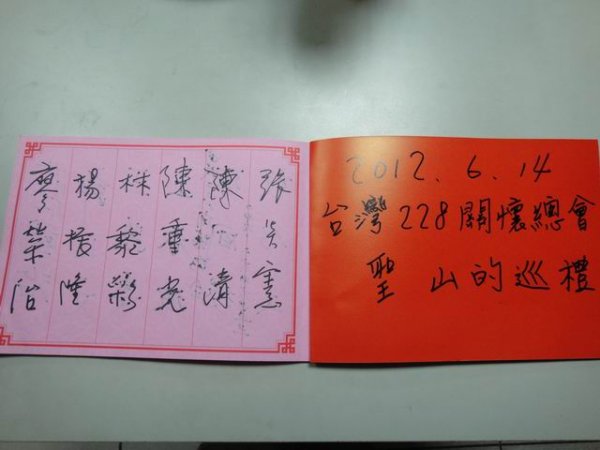 2012.6.14
台灣228關懷總會
聖山的巡禮
張炎憲
陳 清
陳重光
林黎彩
楊振隆
廖榮治